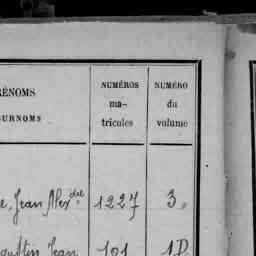 RÉNOMS
SURNOMS
NUMÉROS
ma-
tricules
NUMÉRO
du
volume
e, Jean Alex.dre 1227 3.
gustin Jean 101